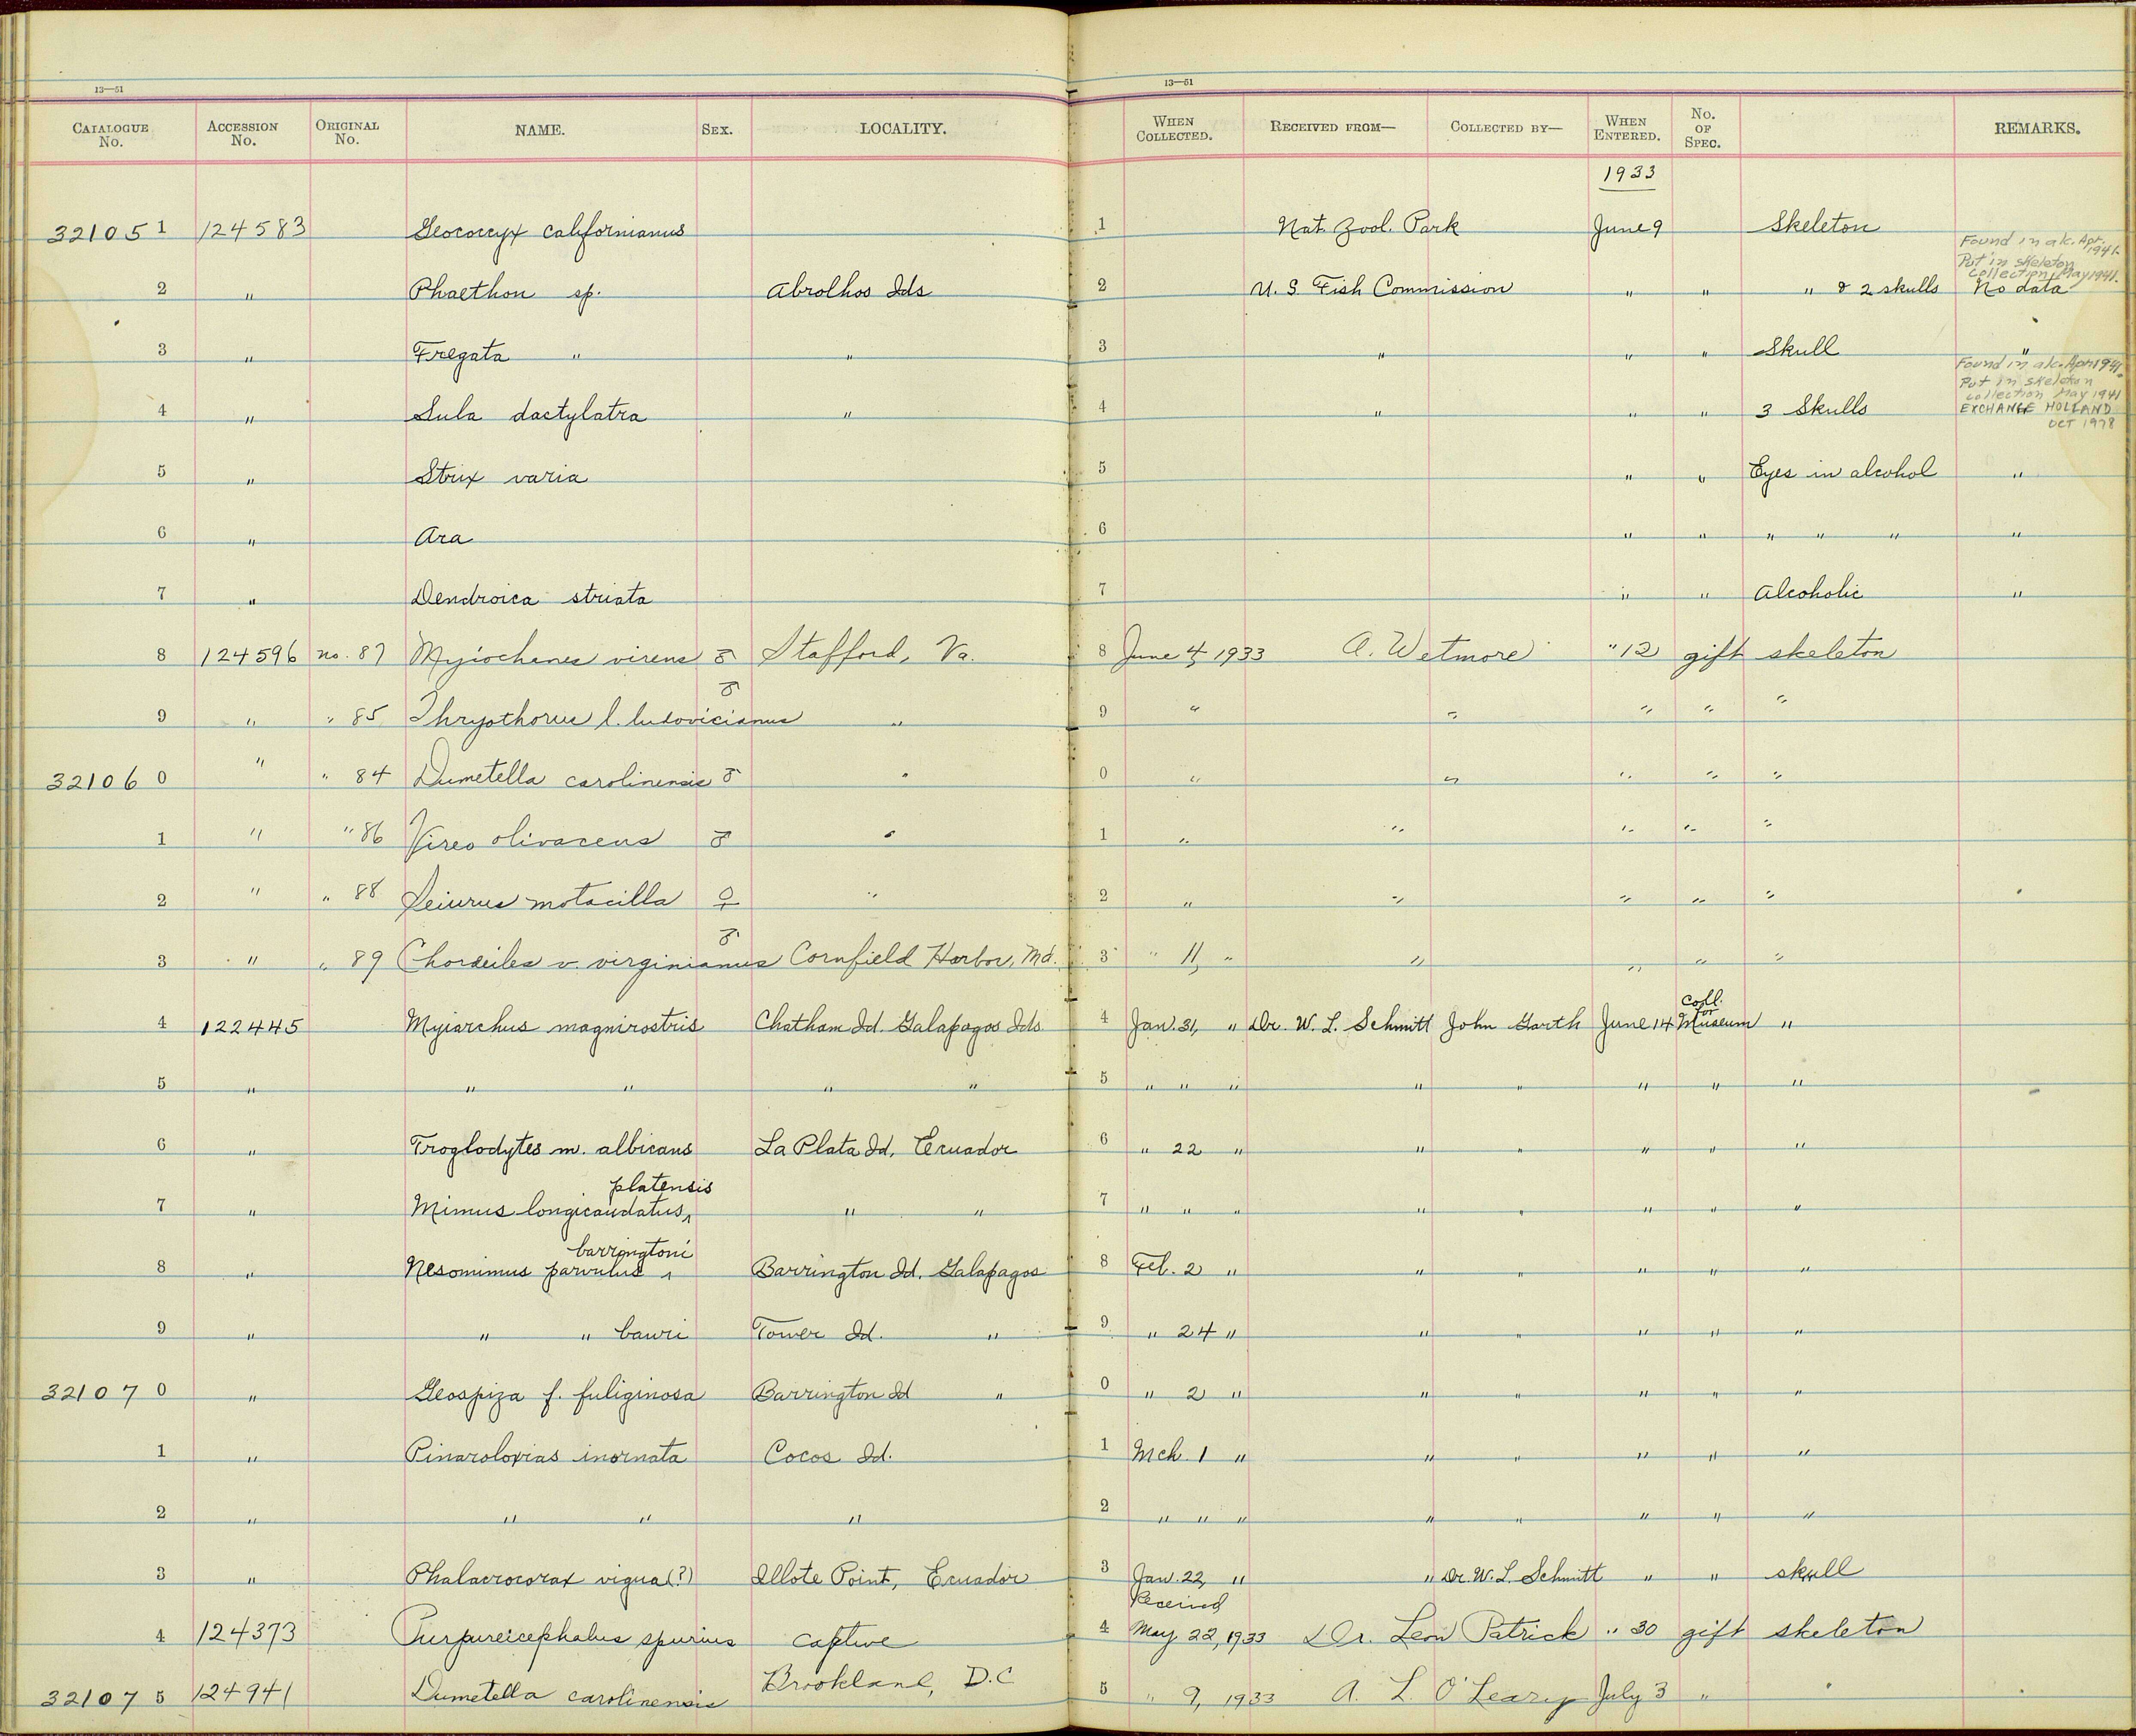 13—51
13—51
CATALOGUE No. ACCESSION No. ORIGINAL No. NAME. SEX. LOCALITY. WHEN COLLECTED. RECEIVED FROM— COLLECTED BY— WHEN ENTERED. No. OF SPEC. REMARKS.
1933
32105 1 124583 Geococcyx californianus 1 Nat. Zool. Park June 9 Skeleton
Found in alc. Apr. 1941.
Put in skeleton
collection May 1941.
2 " Phaethon sp. Abrolhos Ids 2 U. S. Fish Commission " " " & 2 skulls No data
3 " Fregata " " 3 " " " Skull "
Found in alc. Apr 1941.
Put in skeleton
collection May 1941
4 " Sula dactylatra " 4 " " " 3 Skulls EXCHANGE HOLLAND
OCT 1978
5 " Strix varia 5 " " Eyes in alcohol "
6 " Ara 6 " " " " " "
7 " Dendroica striata 7 " " Alcoholic "
8 124596 no. 87 Myiochanes virens ♂ Stafford, Va. 8 June 4, 1933 A. Wetmore " 12 gift skeleton
9 " " 85 Thryothorus l. ludovicianus ♂ " 9 " " " " "
32106 0 " " 84 Dumetella carolinensis ♂ " 0 " " " " "
1 " " 86 Vireo olivaceus ♂ " 1 " " " " "
2 " " 88 Seiurus motacilla ♀ " 2 " " " " "
3 " " 89 Chordeiles v. virginianus ♂ Cornfield Harbor, Md. 3 " 11, " " " " "
4 122445 Myiarchus magnirostris Chatham Id. Galapagos Ids 4 Jan. 31, " Dr. W. L. Schmitt John Garth June 14 Coll. for Museum "
5 " " " " " 5 " " " " " " " "
6 " Troglodytes m. albicans La Plata Id, Ecuador 6 " 22 " " " " " "
platensis
7 " Mimus longicaudatus ^ " " 7 " " " " " " " "
barringtoni
8 " Nesomimus parvulus ^ Barrington Id. Galapagos 8 Feb. 2 " " " " " "
9 " " " bauri Tower Id. " 9 " 24 " " " " " "
32107 0 " Geospiza f. fuliginosa Barrington Id " 0 " 2 " " " " " "
1 " Pinaroloxias inornata Cocos Id. 1 Mch. 1 " " " " " "
2 " " " " 2 " " " " " " " "
3 " Phalacrocorax vigua(?) Illote Point, Ecuador 3 Jan. 22, " " Dr. W. L. Schmitt " " skull
Received
4 124373 Purpureicephalus spurius captive 4 May 22, 1933 Dr. Leon Patrick " 30 gift skeleton
32107 5 124941 Dumetella carolinensis Brookland, D.C 5 " 9, 1933 A. L. O'Leary July 3 " "